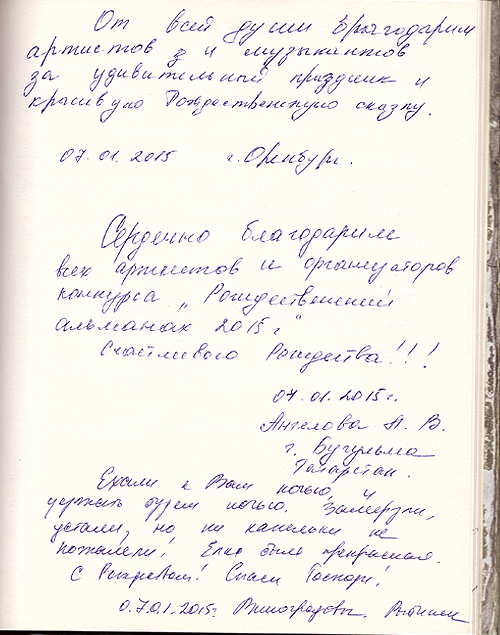 От всей души благодарим
артистов и музыкантов
за удивительный праздник и
красивую Рождественскую сказку.
07.01.2015 г. Оренбург.
Сердечно благодарим
всех артистов и организаторов
конкурса „Рождественский
альманах 2015 г."
Счастливого Рождества!!!
07.01.2015 г.
Ангелова А. В.
г. Бугульма
Татарстан.
Ехали к Вам ночью, и
уезжать будем ночью. Замерзли,
устали, но ни капельки не
пожалели! Елка была прекрасная.
С Рождеством! Спаси Господи!
0.7.0.1.2015г. Виноградовы.